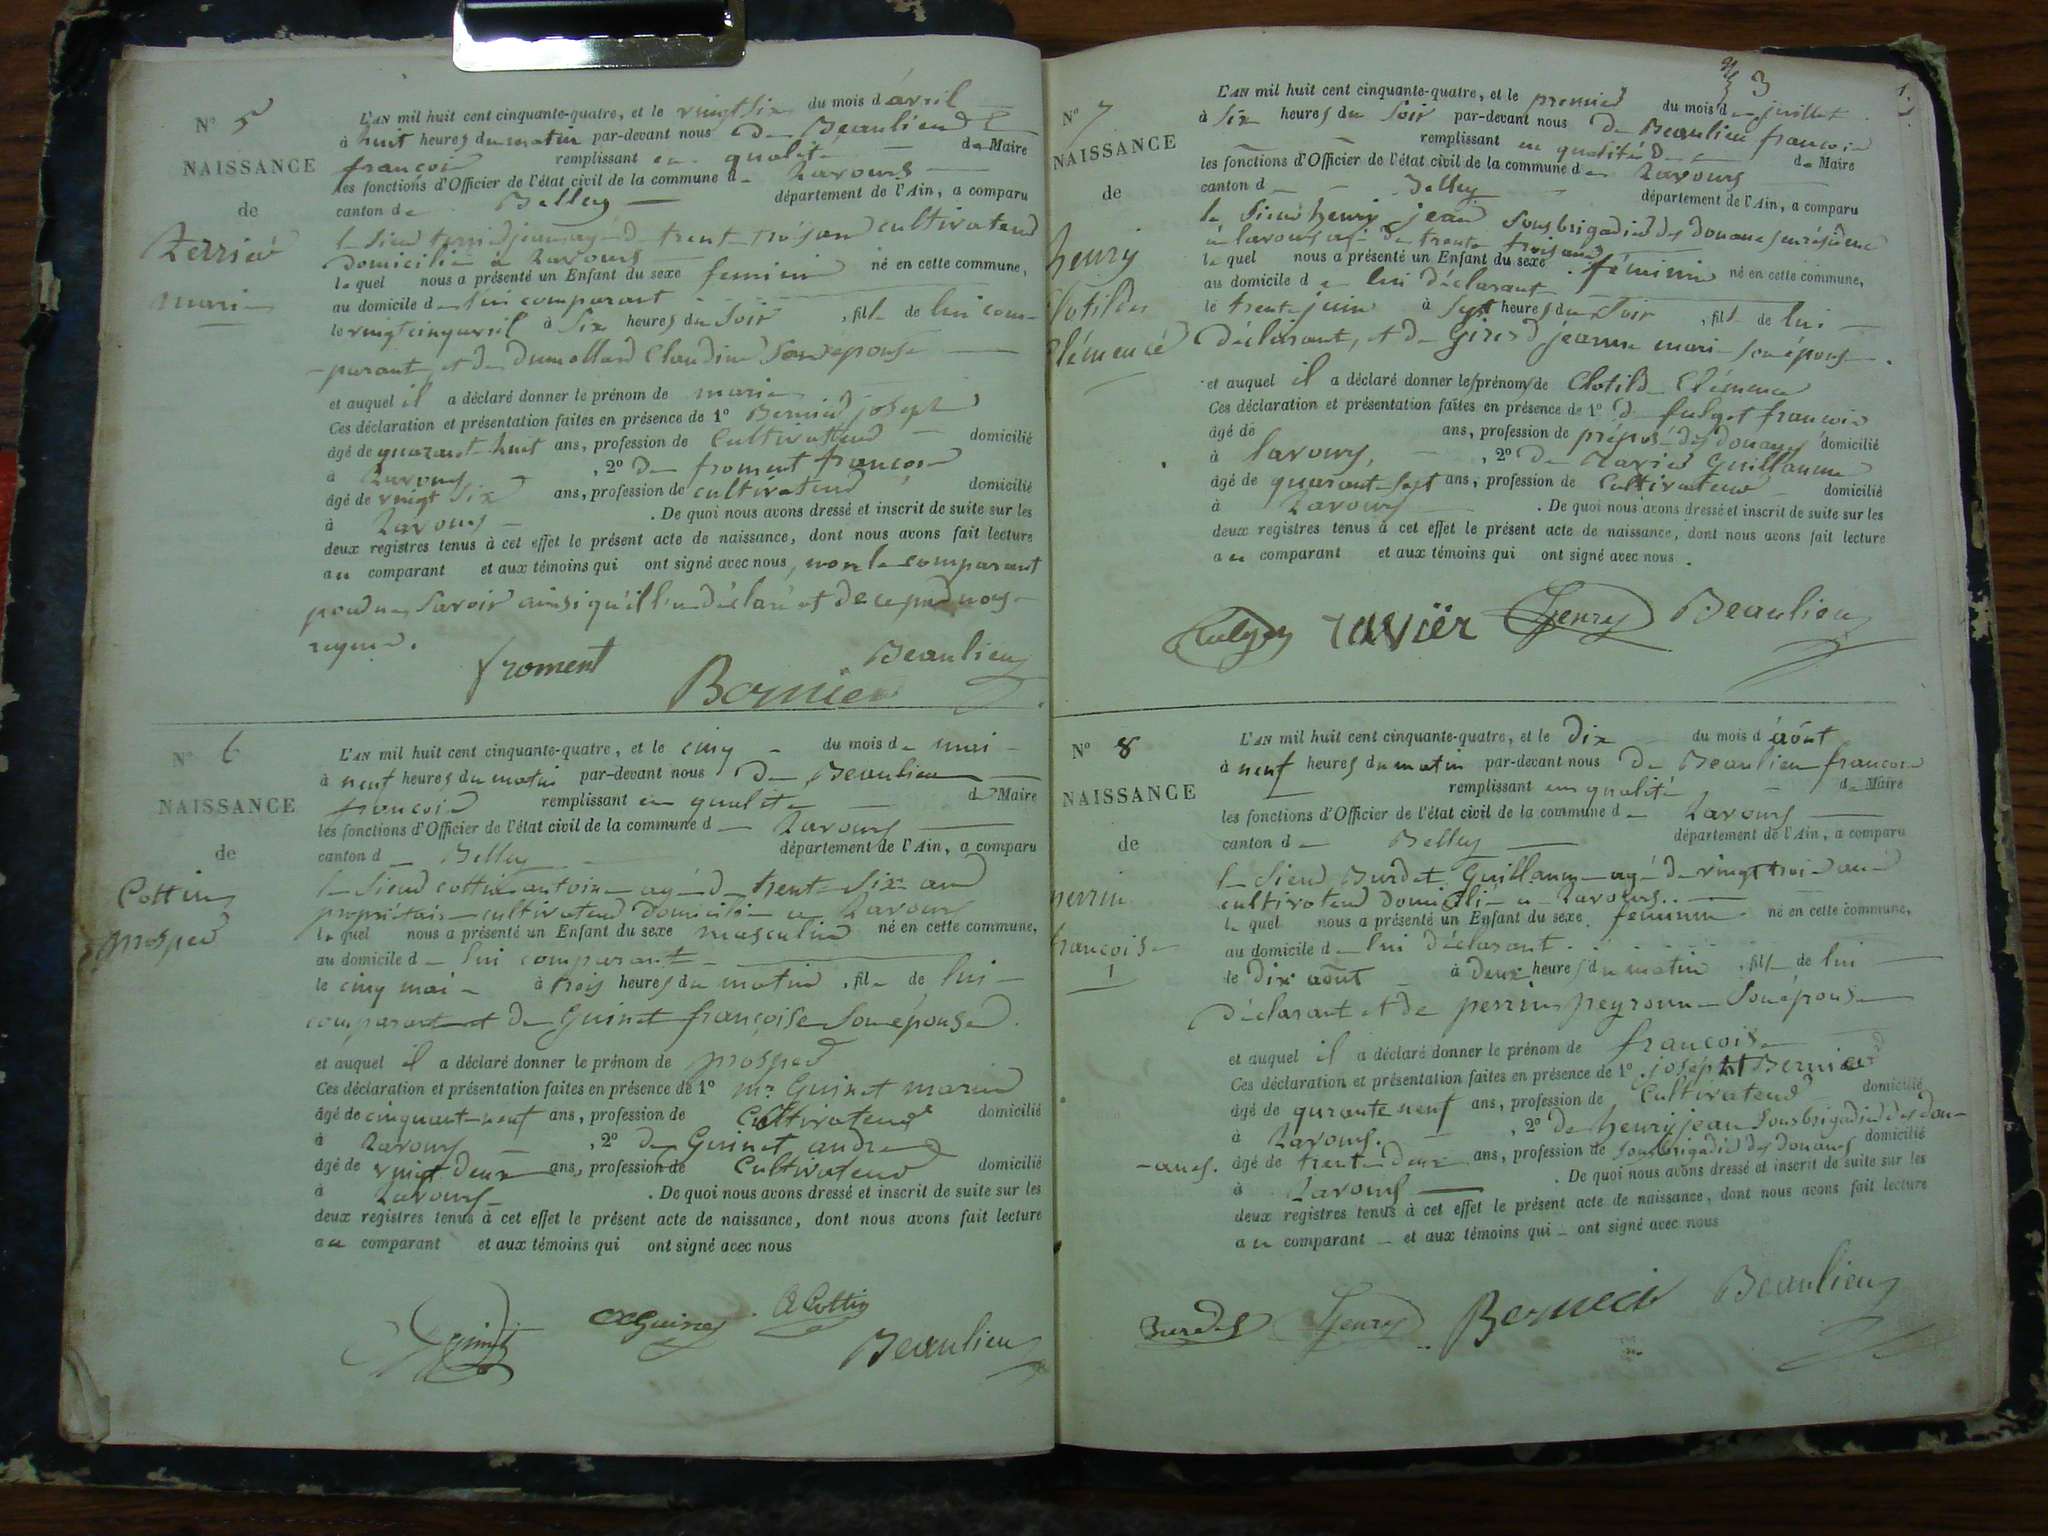 N° 5
NAISSANCE
de
Terrier
marie
L'AN mil huit cent cinquante-quatre, et le vingt six du mois d'avril
à huit heures du matin par-devant nous De Beaulieu
françois remplissant en qualité de Maire
les fonctions d'Officier de l'état civil de la commune d Lavours
canton de Belley département de l'Ain, a comparu
le sieur jean agé de trente trois ans cultivateur
domicilié à Lavours
lequel nous a présenté un Enfant du sexe feminin né en cette commune,
au domicile de lui comparant
le vingt cinq avril à Six heures du Soir, fille de lui com-
-parant, et de dumollard Claudine Son épouse
et auquel il a déclaré donner le prénom de marie
Ces déclaration et présentation faites en présence de 1° Bernier joseph
âgé de quarante huit ans, profession de Cultivateur domicilié
à Lavours, 2° de froment françois
âgé de vingt six ans, profession de cultivateur domicilié
à Lavours. De quoi nous avons dressé et inscrit de suite sur les
deux registres tenus à cet effet le présent acte de naissance, dont nous avons fait lecture
au comparant et aux témoins qui ont signé avec nous, non le comparant
pour ne Savoir ainsi qu'il l'a déclaré et de ce par nous
requis.
froment Beaulieu
Bernier
N° 6
NAISSANCE
de
Cottin
prosper
L'AN mil huit cent cinquante-quatre, et le cinq du mois de mai
à neuf heures du matin par-devant nous De Beaulieu
francois remplissant en qualité de Maire
les fonctions d'Officier de l'état civil de la commune d Lavours
canton d Belley département de l'Ain, a comparu
le Sieur cottin antoine agé de trente Six ans
propriétaire cultivateur domicilié à Lavours
lequel nous a présenté un Enfant du sexe masculin né en cette commune,
au domicile d lui comparant
le cinq mai à trois heures du matin, fils de lui
comparant et de Guinet françoise Son épouse.
et auquel il a déclaré donner le prénom de prosper
Ces déclaration et présentation faites en présence de 1° mr Guinet marin
âgé de cinquante neuf ans, profession de Cultivateur domicilié
à Lavours, 2° de Guinet andre
âgé de vingt deux ans, profession de Cultivateur domicilié
à Lavours. De quoi nous avons dressé et inscrit de suite sur les
deux registres tenus à cet effet le présent acte de naissance, dont nous avons fait lecture
au comparant et aux témoins qui ont signé avec nous
Guinet A Cottin
Beaulieu
3
N° 7
NAISSANCE
de
henry
Clotilde
Clémence
L'AN mil huit cent cinquante-quatre, et le premier du mois de juillet
à six heures du Soir par-devant nous De Beaulieu françois
remplissant en qualité de Maire
les fonctions d'Officier de l'état civil de la commune de Lavours
canton d Belley département de l'Ain, a comparu
le Sieur henry jean Sous brigadier des douanes en résidence
à lavours agé de trente trois ans
lequel nous a présenté un Enfant du sexe féminin né en cette commune,
au domicile de lui déclarant
le trente juin à Sept heures du Soir, fille de lui
déclarant, et de Girerd jeanne marie son épouse.
et auquel il a déclaré donner les prénom de Clotilde Clémence
Ces déclaration et présentation faites en présence de 1° de fulget françois
âgé de ans, profession de préposé des douanes domicilié
à lavours, 2° de Guillaume
âgé de quarante sept ans, profession de Cultivateur domicilié
à Lavours. De quoi nous avons dressé et inscrit de suite sur les
deux registres tenus à cet effet le présent acte de naissance, dont nous avons fait lecture
au comparant et aux témoins qui ont signé avec nous.
henry Beaulieu
N° 8
NAISSANCE
de
perrin
francoise
1
L'AN mil huit cent cinquante-quatre, et le dix du mois d'août
à neuf heures du matin par-devant nous De Beaulieu francois
remplissant en qualité de Maire
les fonctions d'Officier de l'état civil de la commune d Lavours
canton d Belley département de l'Ain, a comparu
le Sieur Burdet Guillaume agé de vingt trois ans
cultivateur domicilié à Lavours.
lequel nous a présenté un Enfant du sexe feminin né en cette commune,
au domicile de lui déclarant.
le dix août à deux heures du matin, fille de lui
déclarant et de perrin peyronne Son épouse
et auquel il a déclaré donner le prénom de francoise
Ces déclaration et présentation faites en présence de 1° joseph Bernier
âgé de qurante neuf ans, profession de Cultivateur domicilié
à Lavours. 2° de henry jean Sous brigadier des dou-
-anes. âgé de trente deux ans, profession de Sous brigadier des douanes domicilié
à Lavours. De quoi nous avons dressé et inscrit de suite sur les
deux registres tenus à cet effet le présent acte de naissance, dont nous avons fait lecture
au comparant et aux témoins qui ont signé avec nous
Burdet henry Bernier Beaulieu